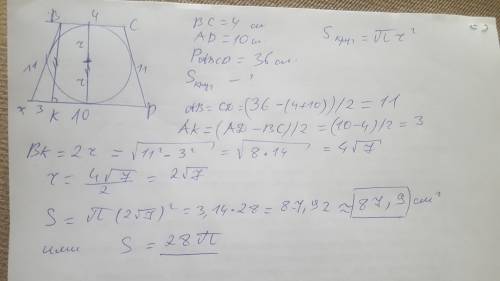 B 4 C
r
r
11 11
x 3 K 10 D
BC = 4 см
AD = 10 см
PABCD = 36 см
Sкруг = π r²
Sкруг — ?
AB = CD = (36 - (4+10))/2 = 11
AK = (AD - BC)/2 = (10-4)/2 = 3
BK = 2r = √11² - 3² = √8·14 = 4√7
r = 4√7/2 = 2√7
S = π (2√7)² = 3,14·28 = 87,92 ≈ 87,9 см²
или S = 28π